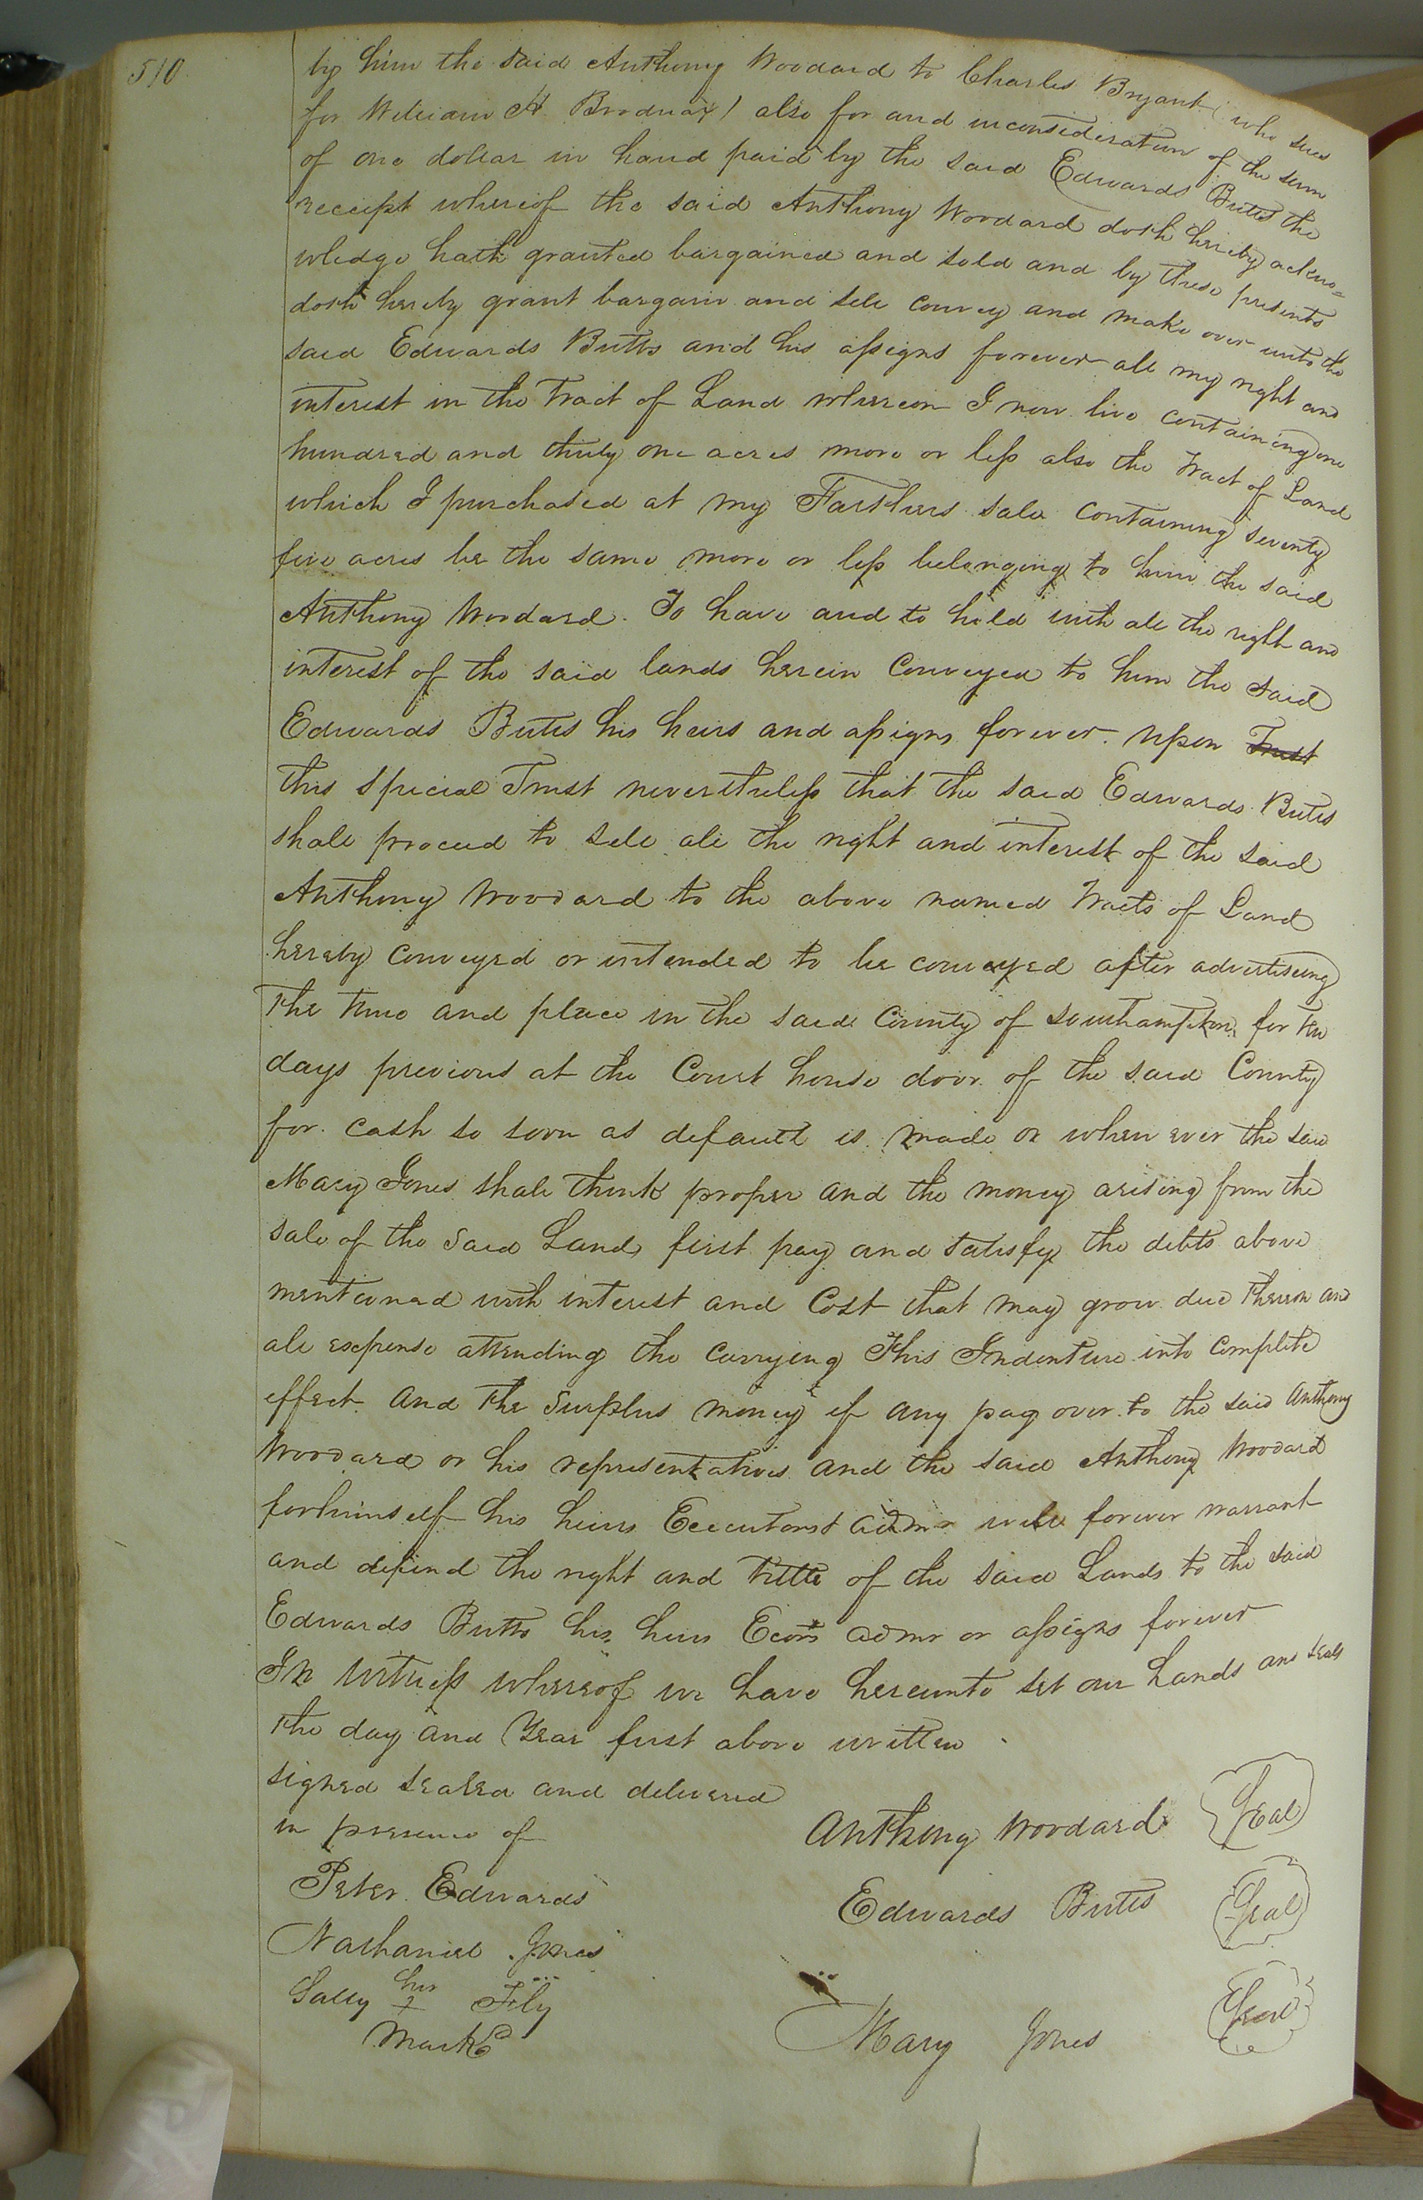 510.
by him the said Anthony Woodard to Charles Bryant (who sues
for William H. Brodnax) also for and in consideration of the sum
of one dollar in hand paid by the said Edwards Butts the
receipt whereof the said Anthony Woodard doth hereby ackno=
wledge hath granted bargained and sold and by these presents
doth hereby grant bargain and sell convey and make over unto the
said Edwards Butts and his assigns forever all my right and
interest in the Tract of Land whereon I now live containing one
hundred and thirty one acres more or less also the Tract of Land
which I purchased at my Farthers sale containing seventy
five acres be the same more or less belonging to him the said
Anthony Woodard. To have and to hold with all the right and
interest of the said lands herein conveyed to him the said
Edwards Butts his heirs and assigns forever. Upon Trust
this special Trust nevertheless that the said Edwards Butts
shall proceed to sell all the right and interest of the said
Anthony Woodard to the above named Tracts of Land
hereby conveyed or intended to be conveyed after advertiseing
the time and place in the said County of Southampton for ten
days previous at the Court house door of the said County
for cash so soon as default is made or when ever the said
Mary Jones shall think proper and the money arising from the
sale of the said Land, first pay and satisfy the debts above
mentioned with interest and Cost that may grow due thereon and
all expense attending the carrying This Indenture into complete
effect and the surplus money if any pay over to the said Anthony
Woodard or his representatives and the said Anthony Woodard
for himself his heirs Executors & admr will forever warrant
and defend the right and tittle of the said Lands to the said
Edwards Butts his heirs Ecors admr or assigns forever
In witness whereof we have hereunto set our hands and seals
the day and year first above written.
signed sealed and delivered
in presence of
Anthony Woodard Seal
Peter Edwards
Edwards Butts Seal
Nathaniel Jones
Sally her x Fly
mark
Mary Jones Seal